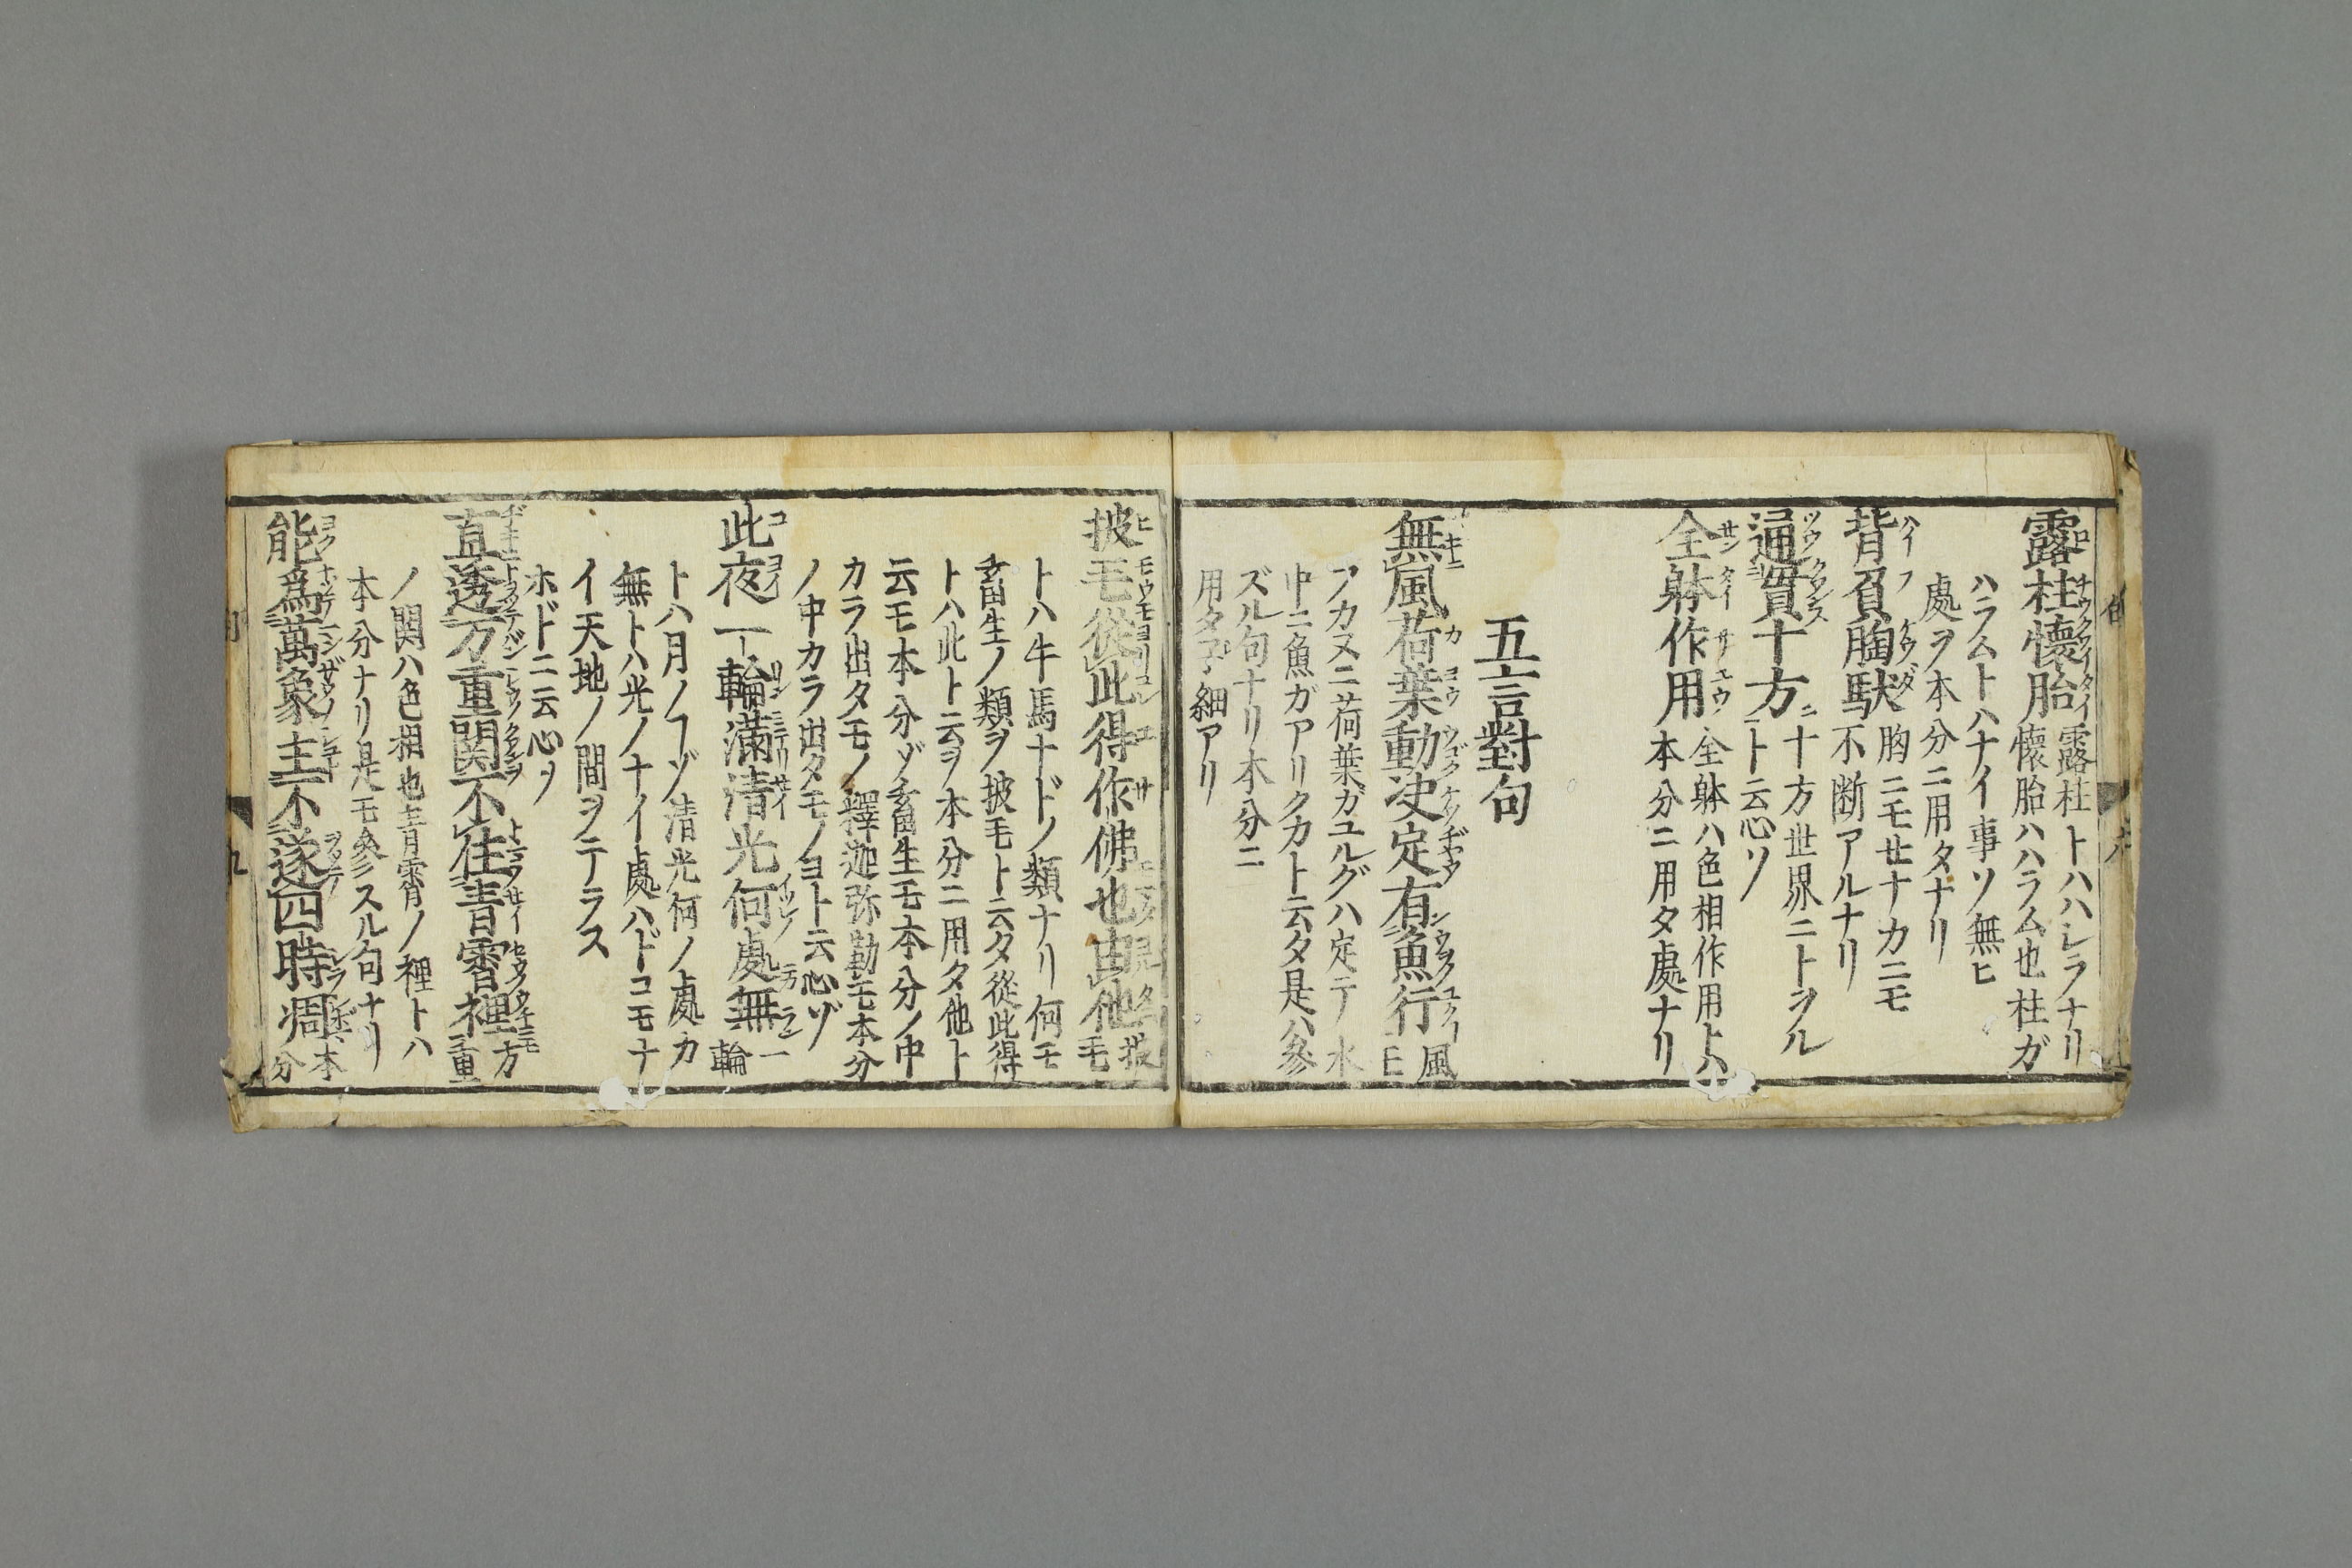 露柱懷胎露柱トハハシラナリ
懷胎ハハラム也柱ガ
ハラムトハナイ事ソ無ヒ
處ヲ本分ニ用タナリ
背負胸馱胸ニモせナカニモ
不断アルナリ
通貫十方十方世界ニトヲル
ト云心ソ
全躰作用全躰ハ色相作用トハ
本分ニ用タ處ナリ
五言對句
無風荷葉動决定有魚行風
モ
フカヌニ荷葉ガユルグハ定テ水
中ニ魚ガアリクカト云タ是ハ參
ズル句ナリ本分ニ
用タ子細アリ
披毛從此得作佛也由他披
毛
トハ牛馬ナドノ類ナリ何モ
畜生ノ類ヲ披毛ト云タ從此得
トハ此ト云ヲ本分ニ用タ他ト
云モ本分ゾ畜生モ本分ノ中
カラ出タモノ釋迦弥勒モ本分
ノ中カラ出タモノヨト云心ゾ
此夜一輪滿清光何處無一
輪
トハ月ノヿゾ清光何ノ處カ
無トハ光ノナイ處ハドコモナ
イ天地ノ間ヲテラス
ホドニ云心ソ
直透万重関不住青霄裡万
重
ノ関ハ色相也青霄ノ裡トハ
本分ナリ是モ參スル句ナリ
能爲萬象主不逐四時凋本
分